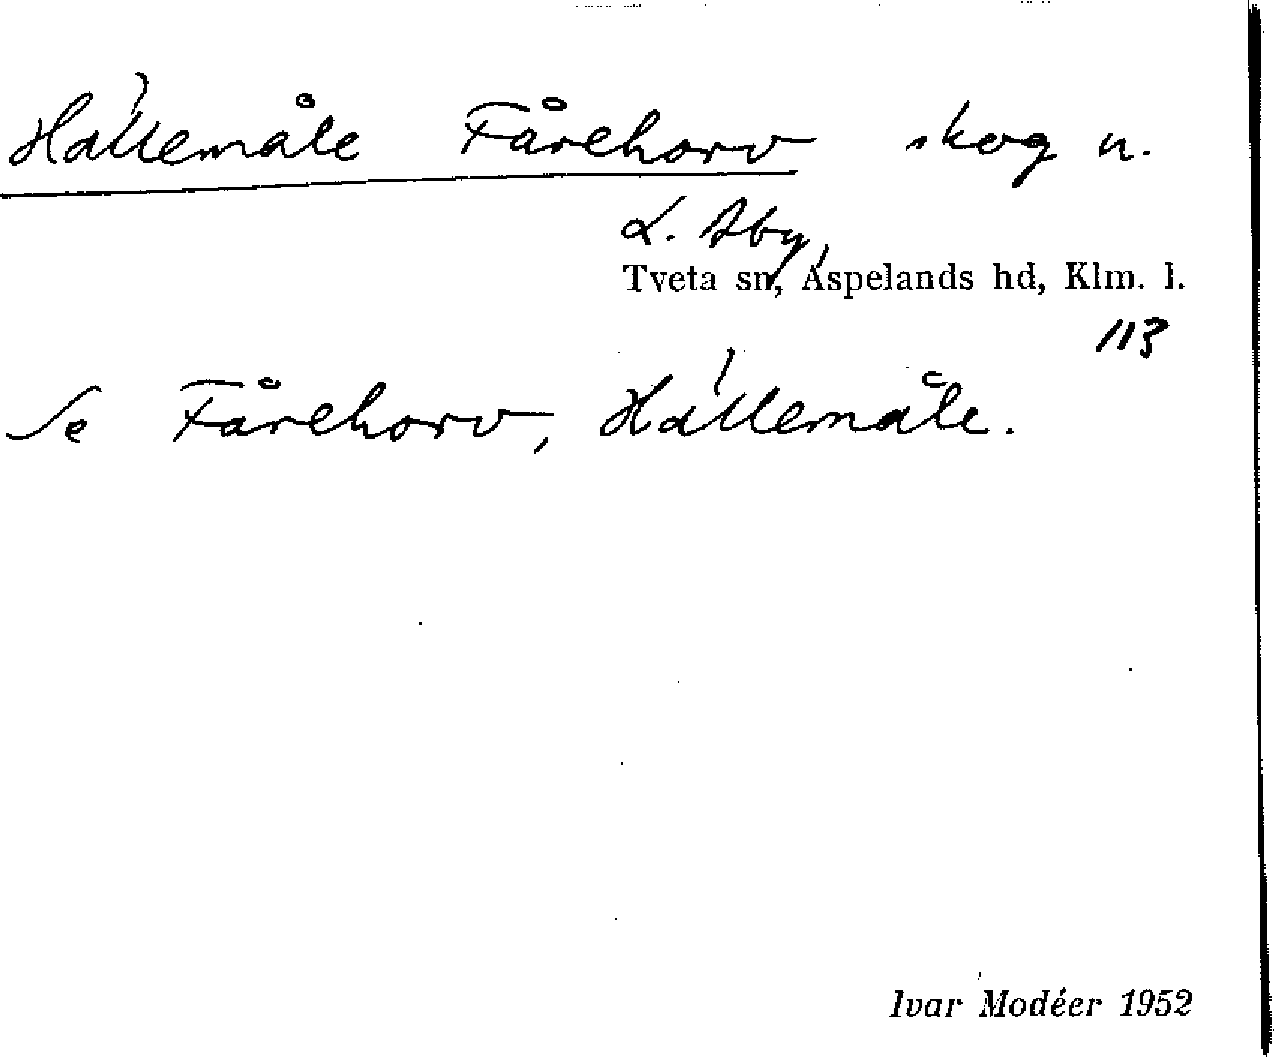 Hallemåle Fårehorv skog n.
L. Åby,
Tveta sn, Aspelands hd, Klm. l.
113
Se Fårehorv, Hallemåle.
Ivar Modéer 1952